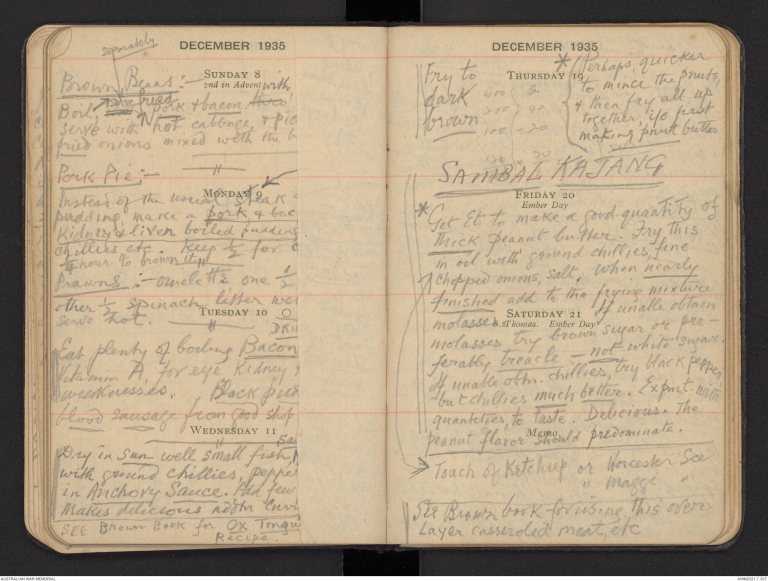 separately
DECEMBER 1935
SUNDAY 8
2nd in Advent
Brown Beans:- with
Boil, serve fried pork & bacon
serve with hot cabbage, &
fried onions mixed with the
Pork Pie:-
MONDAY 9
Instead of the usual steak
pudding make a pork &
kidney & liver boiled pudding
chillies etc. Keep ½ for
¼ hour to brown it
Prawns:- omelette one ½
other ½ spinach latter
serve hot.
TUESDAY 10
Eat plenty of boiling Bacon
Vitamin A, for eye kidney
weaknesses. Black
blood sausage from good shop
WEDNESDAY 11
Dry in sun well small fish
with ground chillies,
in Anchovy Sauce. Add few
Makes delicious
SEE Brown Book for Ox
Recipe.
DECEMBER 1935
THURSDAY 19
Fry to
dark
brown
* Perhaps quicker
to mince the pnuts,
& then fry all up
together, i/o first
making pnut butter
400
200
100
SAMBAL KAJANG
FRIDAY 20
Ember Day
* Get Et to make a good quantity of
thick peanut butter. Fry this
in oil with ground chillies, fine
chopped onions, salt. When nearly
finished add to the frying mixture
molasses. If unable obtain
SATURDAY 21
S. Thomas. Ember Day
molasses try brown sugar or pre-
ferably treacle - not white sugar.
If unable obtn. chillies, try black pepper,
but chillies much better. Expmt. with
quantities, to taste. Delicious. The
Memo.
peanut flavor should predominate.
Touch of Ketchup or Worcester Sce
" " Maggi "
See Brown book for using this over
Layer casseroled meat, etc
AUSTRALIAN WAR MEMORIAL